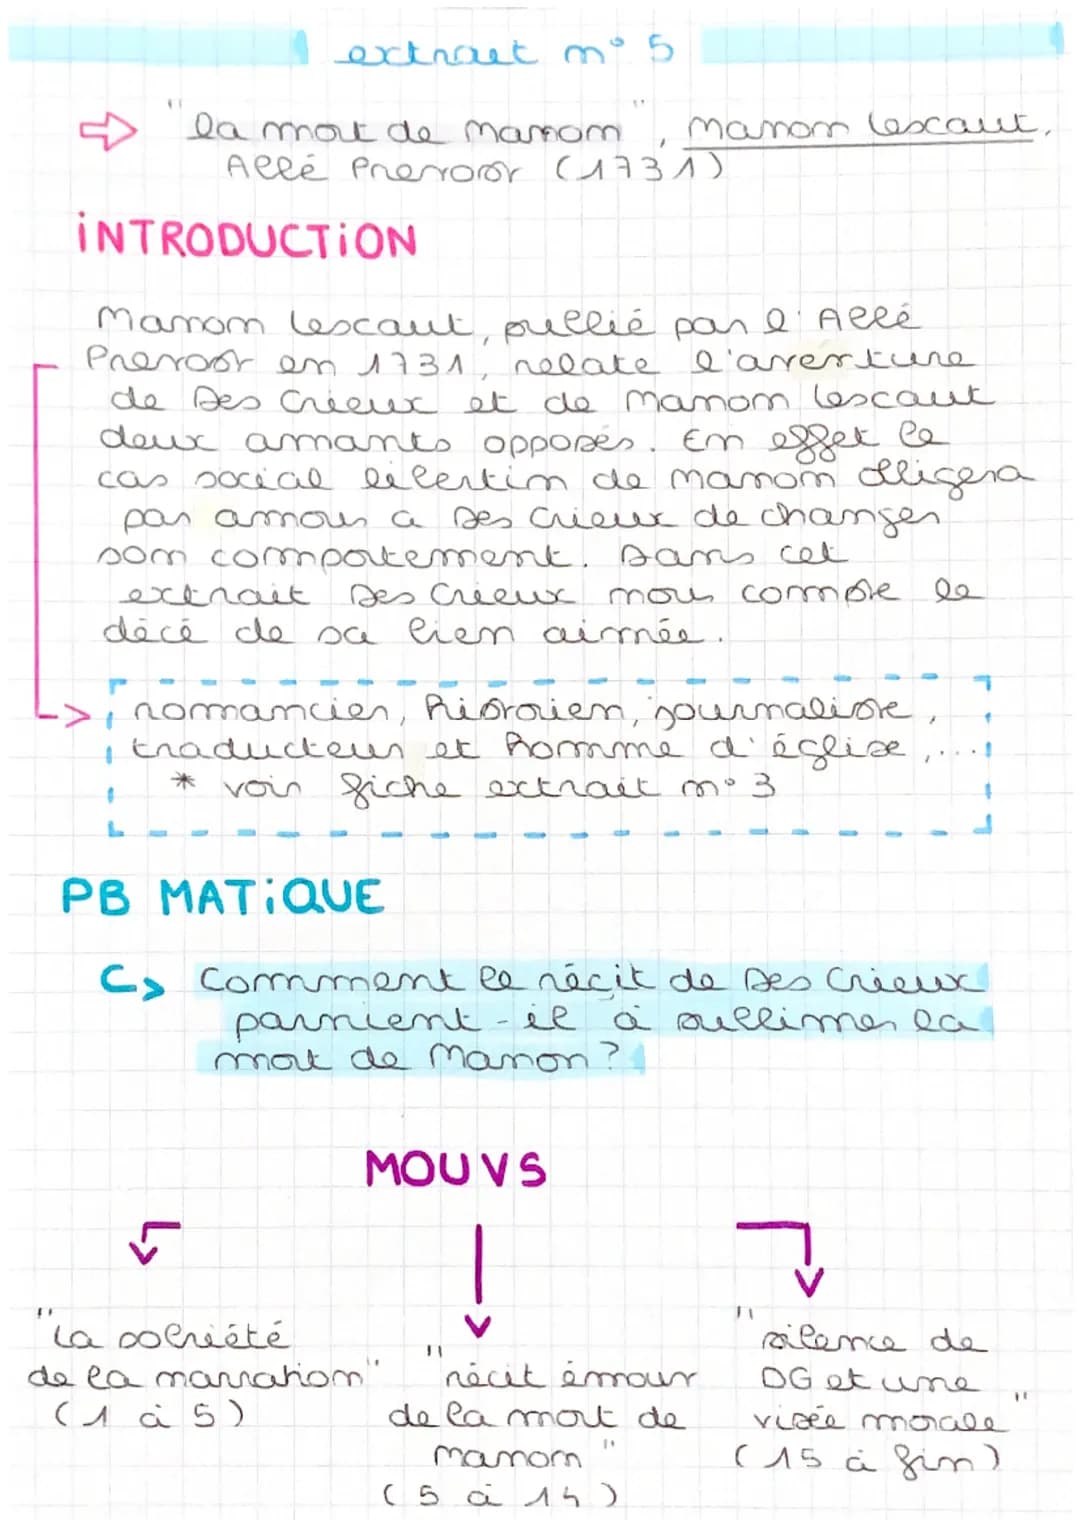 extrait n° 5
⇨ "la mort de Manon", Manon Lescaut,
Abbé Prevost (1731)
iNTRODUCTiON
Manon Lescaut, publié par l'Abbé
Prevost en 1731, relate l'aventure
de Des Grieux et de Manon Lescaut
deux amants opposés. En effet le
cas social libertin de Manon obligera
par amour a Des Grieux de changer
son comportement. Dans cet
extrait Des Grieux nous compte le
décé de sa bien aimée.
-> romancier, historien, journaliste,
traducteur et homme d'église,...
* voir fiche extrait n° 3
PB MATiQUE
↳ Comment le récit de Des Grieux
parvient-il à sublimer la
mort de Manon ?
MOUVS
"La sobriété
de la narration"
(1 à 5)
"récit émouv
de la mort de
manon"
(5 à 14)
"silence de
DG et une
visée morale"
(15 à fin)